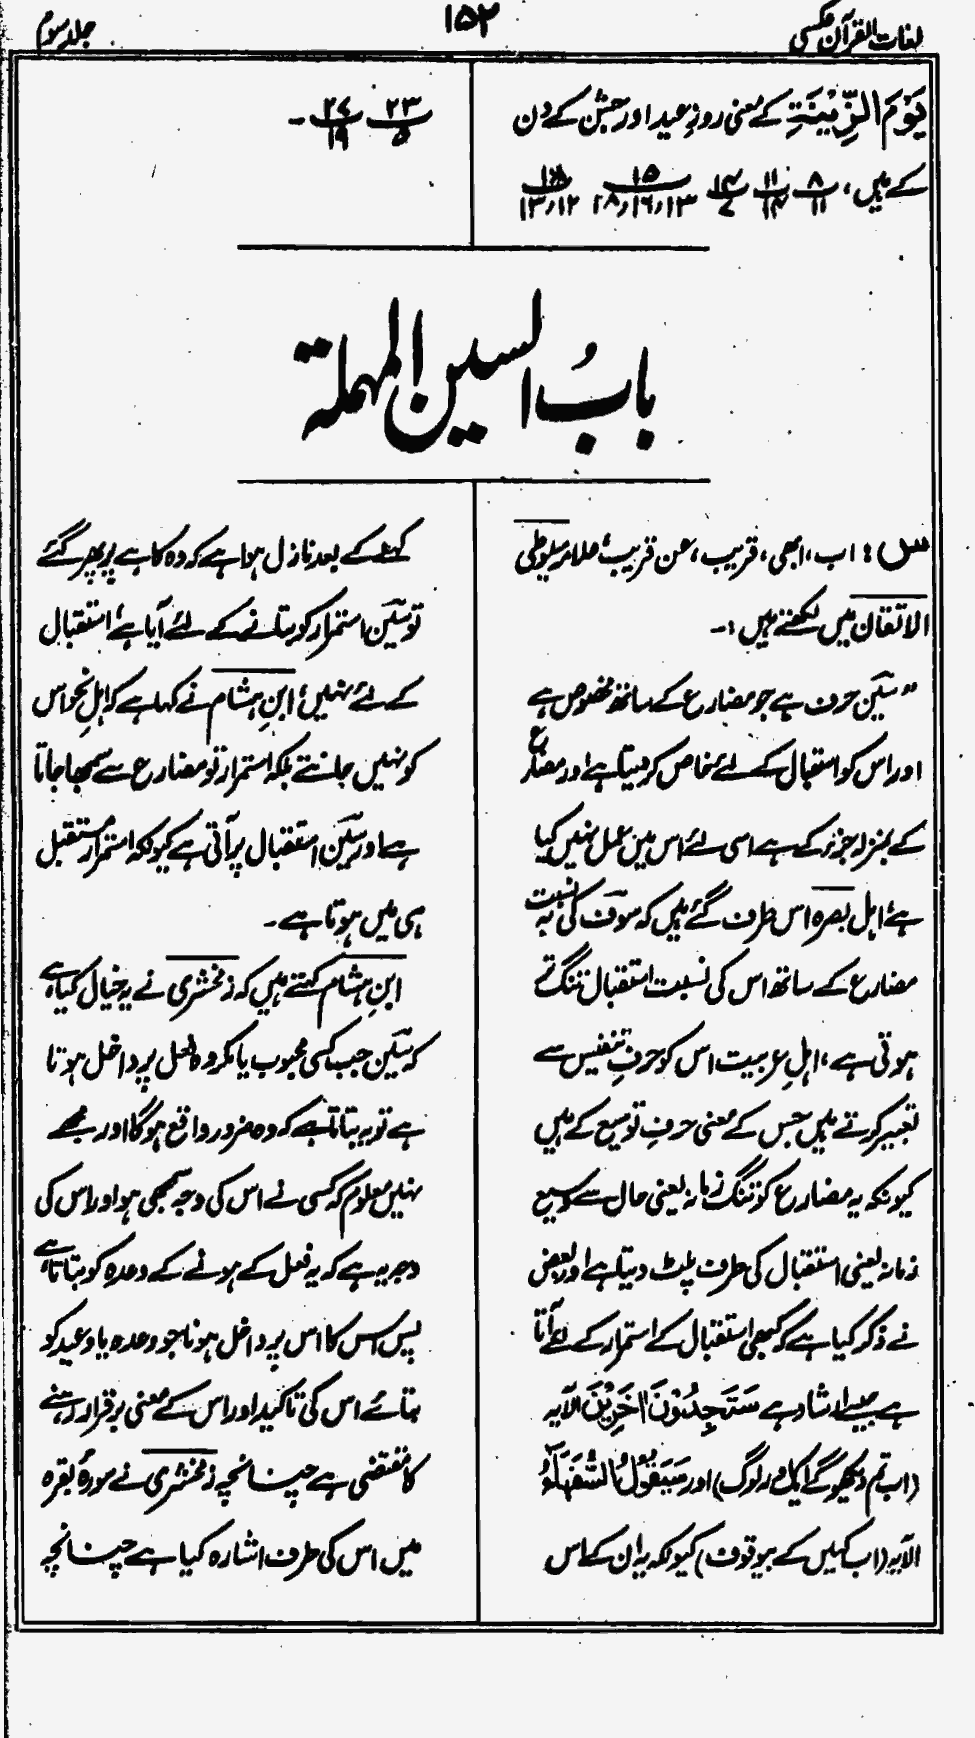 لغات القرآن عکسی
۱۵۲
جلد سوم
یَوْمَ الزِّیْنَۃِ کے معنی روزِ عید اور جشن کے دن
کے ہیں، ۸/۱۱ ۱۱/۱۴ ۱۴/۷ ۱۵/۱۳،۱۶،۲۸ ۱۸/۱۲،۱۳
۲۳/۵ ۲۷/۱۹ ۔
بابُ السین المہملۃ
س : اب، ابھی، قریب، عن قریب، علامہ سیوطی
الاتقان میں لکھتے ہیں :۔
"سین حرف ہے جو مضارع کے ساتھ مخصوص ہے
اور اس کو استقبال کے لئے خاص کر دیتا ہے اور مضارع
کے بمنزلہ جزر کے ہے اسی لئے اس میں عمل نہیں کیا
ہے، اہل بصرہ اس طرف گئے ہیں کہ سوف کی بہ نسبت
مضارع کے ساتھ اس کی نسبت استقبال تنگ تر
ہوتی ہے، اہلِ عربیت اس کو حرفِ تنفیس سے
تعبیر کرتے ہیں جس کے معنی حرفِ توسیع کے ہیں
کیونکہ یہ مضارع کو تنگ زمانہ یعنی حال سے وسیع
زمانہ یعنی استقبال کی طرف پلٹ دیتا ہے اور بعض
نے ذکر کیا ہے کہ کبھی استقبال کے استمرار کے لئے آتا
ہے جیسے ارشاد ہے سَتَجِدُوْنَ اٰخَرِیْنَ الآیہ
(اب تم دیکھو گے ایک اور لوگ) اور سَیَقُوْلُ السُّفَہَآءُ
الآیہ (اب کہیں گے بیوقوف) کیونکہ یہ ان کے اس
کہنے کے بعد نازل ہوا ہے کہ وہ کاہے پر پھر گئے
تو سین استمرار کو بتانے کے لئے آیا ہے، استقبال
کے لئے نہیں، ابنِ ہشام نے کہا ہے کہ اہلِ نحو اس
کو نہیں جانتے بلکہ استمرار تو مضارع سے سمجھا جاتا
ہے اور سین استقبال پر آتی ہے کیونکہ استمرار مستقبل
ہی میں ہوتا ہے۔
ابنِ ہشام کہتے ہیں کہ زمخشری نے یہ خیال کیا ہے
کہ سین جب کسی محبوب یا مکروہ فعل پر داخل ہوتا
ہے تو یہ بتاتا ہے کہ وہ ضرور واقع ہوگا اور مجھے
نہیں معلوم کہ کسی نے اس کی وجہ سمجھی ہو اور اس کی
وجہ یہ ہے کہ یہ فعل کے ہونے کے وعدہ کو بتاتا ہے
پس س کا اس پر داخل ہونا جو وعدہ یا وعید کو
بتائے اس کی تاکید اور اس کے معنی برقرار رہنے
کا مقتضی ہے چنانچہ زمخشری نے سورۂ بقرہ
میں اس کی طرف اشارہ کیا ہے چنانچہ